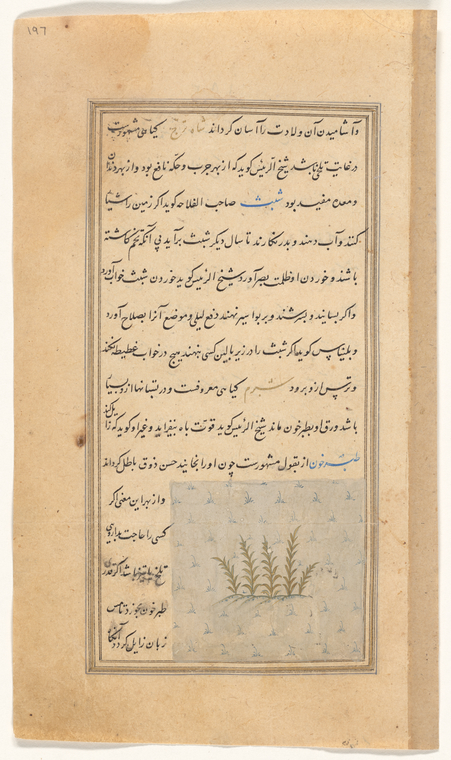 ۱۹۷
وآشامیدن آن ولادت را آسان گرداند شاه ترج کیاهی مشهورست
در غایت تلخی باشد شیخ الرئیس کوید که از بهر جرب وحکه نافع بود واز بهر دندان
ومعده مفید بود شبث صاحب الفلاحه کوید اکر زمین را
کنند وآب دهند وبدر نکارند تا سال دیکر شبث برآید بی آنکه تخم کاشته
باشند وخوردن او ظلمت بصر آورد شیخ الرئیس کوید خوردن شبث خواب آورد
واکر بسایند وبسرشند وبر بواسیر نهند دفع لیلی وموضع آنرا بصلاح آورد
وبلیناس کوید اکر شبث را در زیر بالین کسی بنهند هیچ در خواب غطیطه نکند
وترس ازو برود شبرم کیاهی معروفست ودر بستانها
باشد ورق او بطبرخون ماند شیخ الرئیس کوید قوت باه بیفزاید وغیر او کوید که
طبرخون از بقول مشهورست چون او را بخایند حس ذوق باطل کرداند
واز بهر این معنی اکر
کسی را حاجت بداروی
تلخ باشد اکر قدری
طبرخون بخورد تا حس
زبان زایل کردد